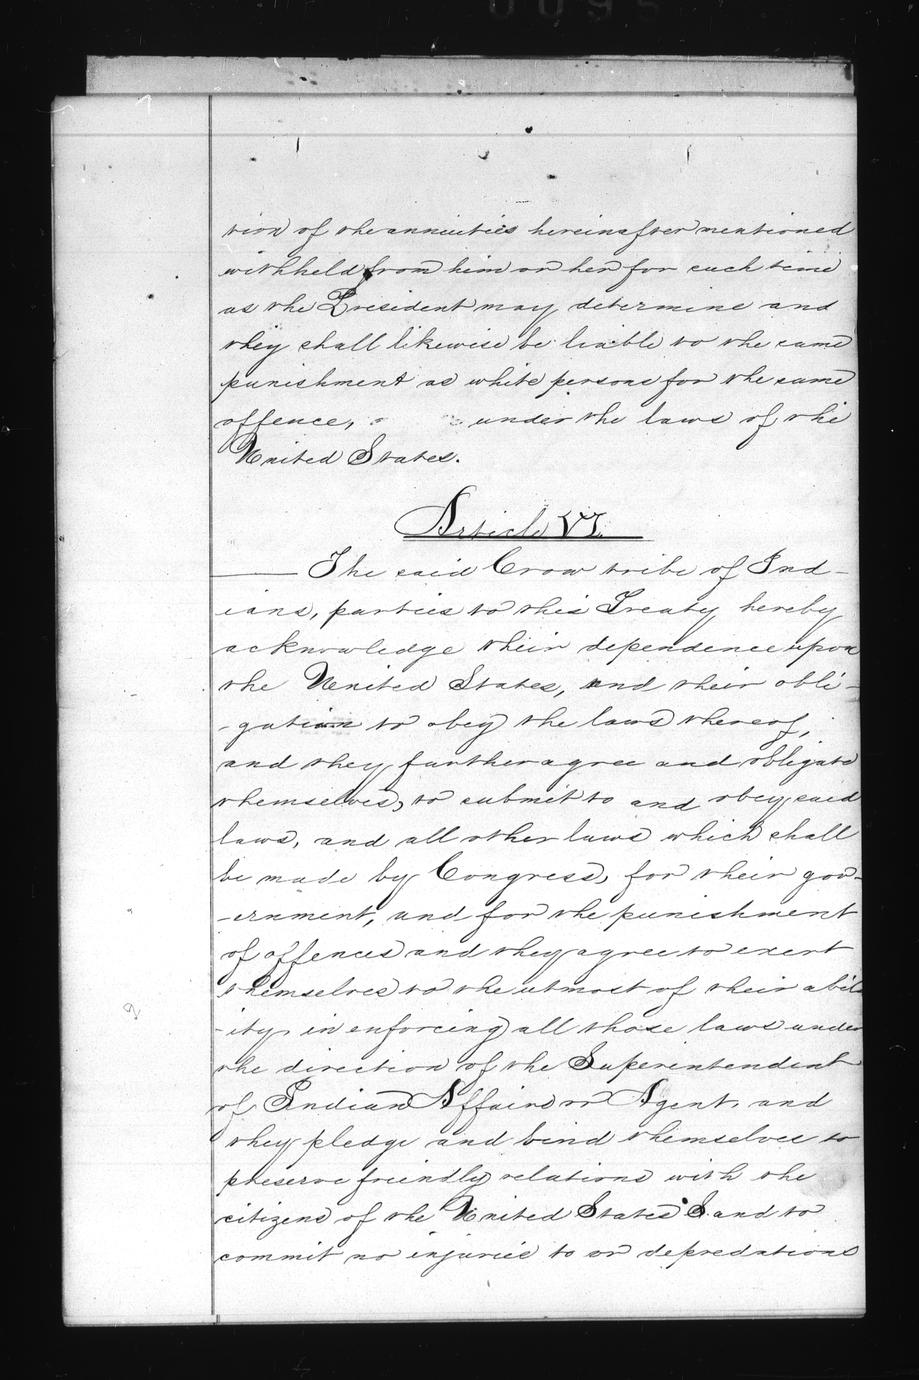 tion of the annuities hereinafter mentioned
withheld from him or her for such time
as the President may determine and
they shall likewise be liable to the same
punishment as white persons for the same
offence, under the laws of the
United States.
Article VI.
The said Crow tribe of Ind-
ians, parties to this Treaty hereby
acknowledge their dependence upon
the United States, and their obli-
-gation to obey the laws thereof,
and they further agree and obligate
themselves, to submit to and obey said
laws, and all other laws which shall
be made by Congress, for their gov-
-ernment, and for the punishment
of offences and they agree to exert
themselves to the utmost of their abil
-ity in enforcing all those laws under
the direction of the Superintendent
of Indian Affairs or Agent, and
they pledge and bind themselves to
preserve friendly relations with the
citizens of the United States and to
commit no injuries to or depredations